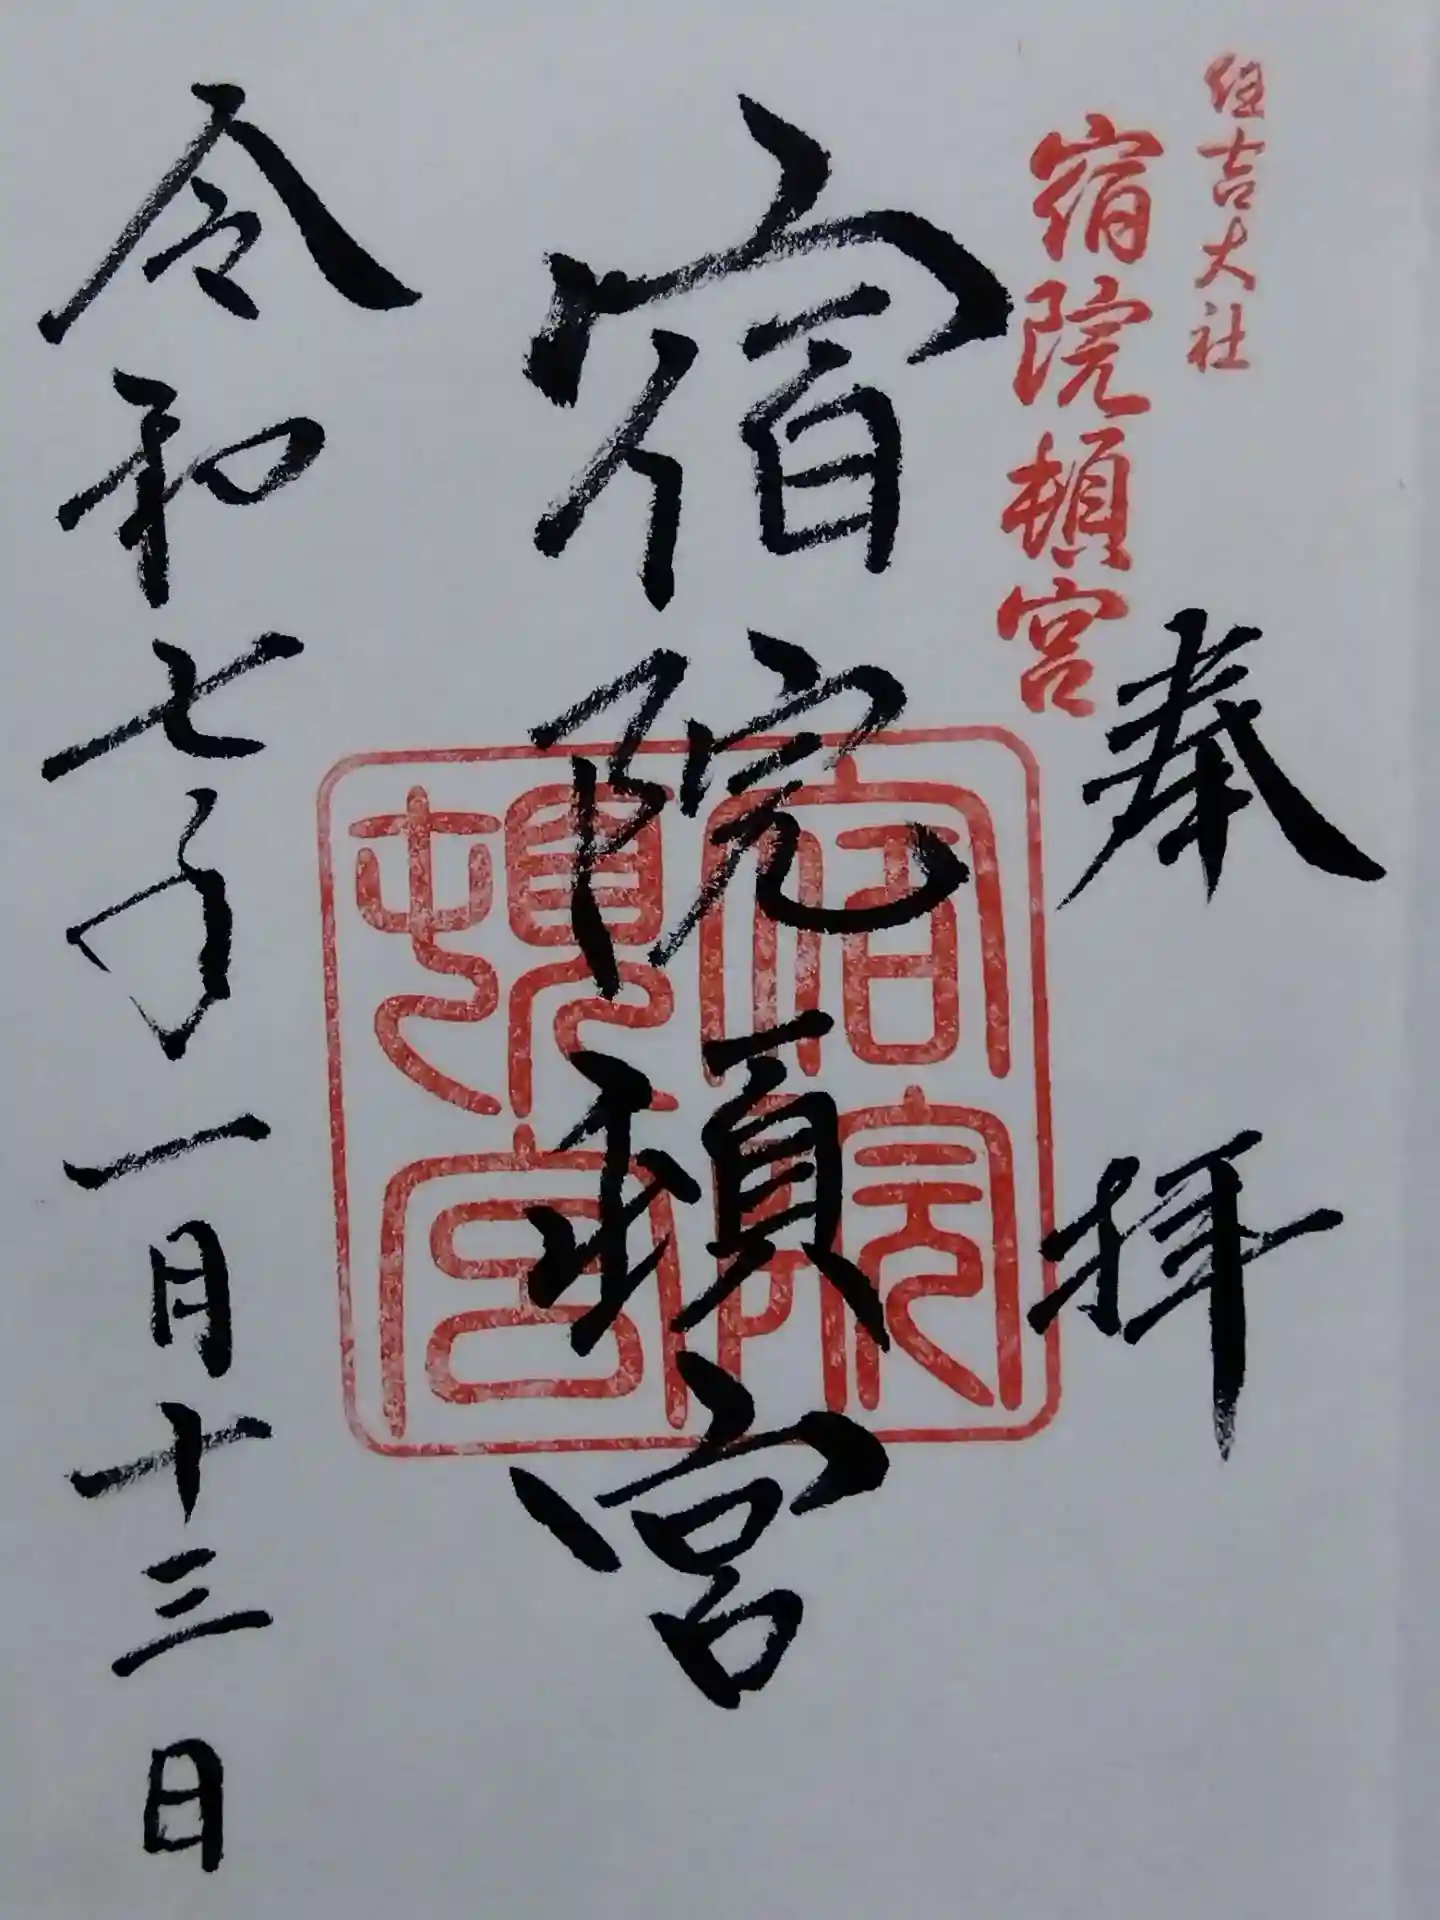 住吉大社
宿院頓宮
奉拝
宿院頓宮
宿院
頓宮
令和七年一月十三日